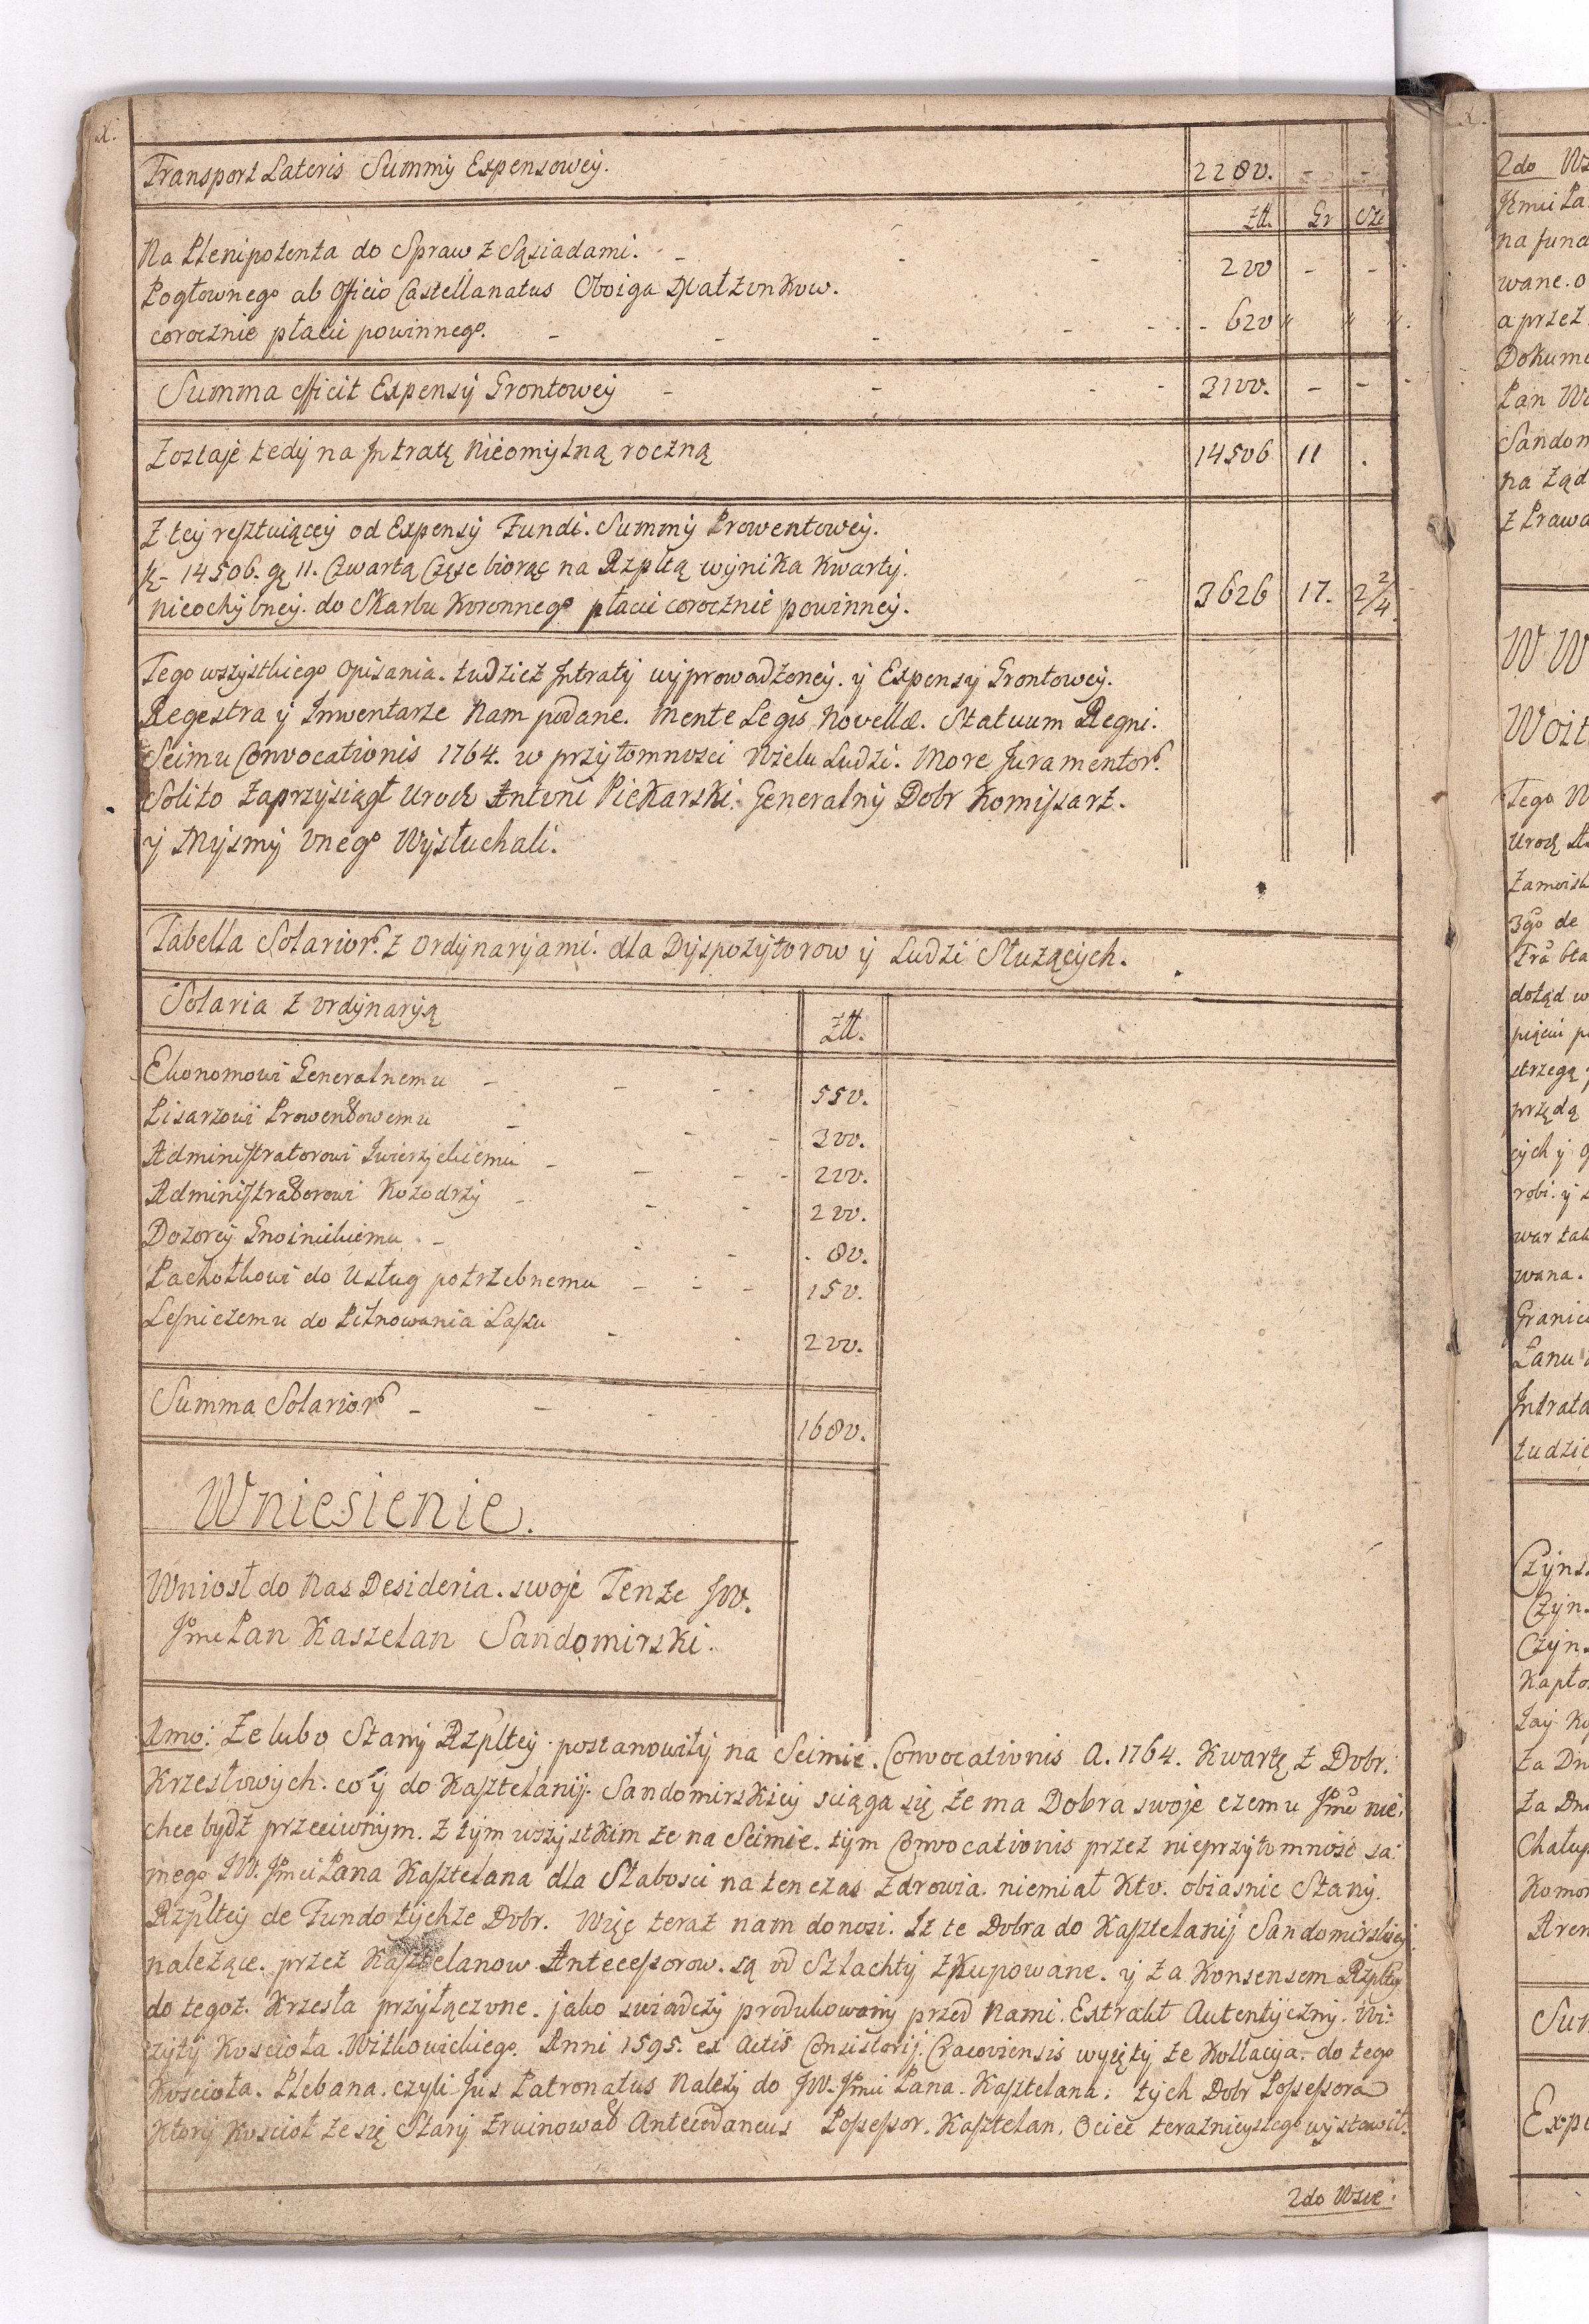 Transport Lateris Summy Expensowey. 2280.
Złł. Gr Sze
Na Plenipotenta do Spraw z Sąsiadami. - - - 200 - -
Pogłownego ab Officio Castellanatus Oboiga Małżonkow.
corocznie płacić powinnego. - - - - - 620 " " "
Summa efficit Expensy Grontowey - - - 3100. - -
Zostaje tedy na Intratę Nieomylną roczną 14506 11 .
Z tey resztuiącey od Expensy Fundi. Summy Prowentowey.
14506. gr 11. Czwartą Częsc biorąc na Rzpltą wynika Kwarty.
nieochybney. do Skarbu Koronnego płacić corocznie powinney. 3626 17. 2 2/4
Tego wszystkiego Opisania. tudziez Intraty wyprowadzoney. y Expensy Grontowey.
Regestra y Inwentarze Nam podane. Mente Legis Novellæ. Statuum Regni.
Seimu Convocationis 1764. w przytomnosci Wielu Ludzi. More Juramentor.
Solito Zaprzysiągł Urodz Antoni Piekarski. Generalny Dobr Komissarz.
y Mysmy Onego Wysłuchali.
Tabella Solarior. z Ordynaryjami. dla Dyspozytorow y Ludzi Służących.
Solaria z Ordynaryją Złł.
Ekonomowi Generalnemu - - - 550.
Pisarzowi Prowentowemu - - - 300.
Administratorowi - - - 200.
Administratorowi Kozodrzy - - - 200.
Dozorcy Gnoinickiemu - - - . 80.
Pachołkowi do Usług potrzebnemu - - - 150.
Lesniczemu do Pilnowania Lassu - - 200.
Summa Solarior - - - 1680.
Wniesienie.
Wniosł do Nas Desideria. swoje Tenze JW.
Jmc Pan Kasztelan Sandomirski.
1mo: Ze lubo Stany Rzpltey. postanowiły na Seimie. Convocationis A. 1764. Kwartę z Dobr.
Krzesłowych. co y do Kasztelanij. Sandomirskiey sciąga się, ze ma Dobra swoje czemu Jmc nie
chce bydz przeciwnym. Z tym wszystkim ze na Seimie. tym Convocationis przez nieprzytomność sa:
mego JW. Jmci Pana Kasztelana dla Słabosci na ten czas Zdrowia. niemiał Kto. obiasnic Stany.
Rzpltey de Fundo tychze Dobr. Więc teraz nam donosi. Iz te Dobra do Kasztelanij Sandomirskiey
nalezące. przez Kasztelanow Antecessorow. są od Szlachty zkupowane. y za Konsensem Rzplty
do tegoz. Krzesła przyłączone. jako swiadczy produkowany przed Nami. Extrakt Autentyczny. Wi:
zyty Koscioła. Witkowickiego. Anni 1595. ex Actis Consistorij. Cracoviensis wyięty ze Kollacyja. do tego
Koscioła. Plebana. czyli Jus Patronatus Nalezy do JW. Jmci Pana. Kasztelana. tych Dobr Possessora
Ktory Koscioł ze się Stary zruinował Antecedaneus Possessor. Kasztelan. Ociec teraznieyszego wystawił.
2do Wsie: